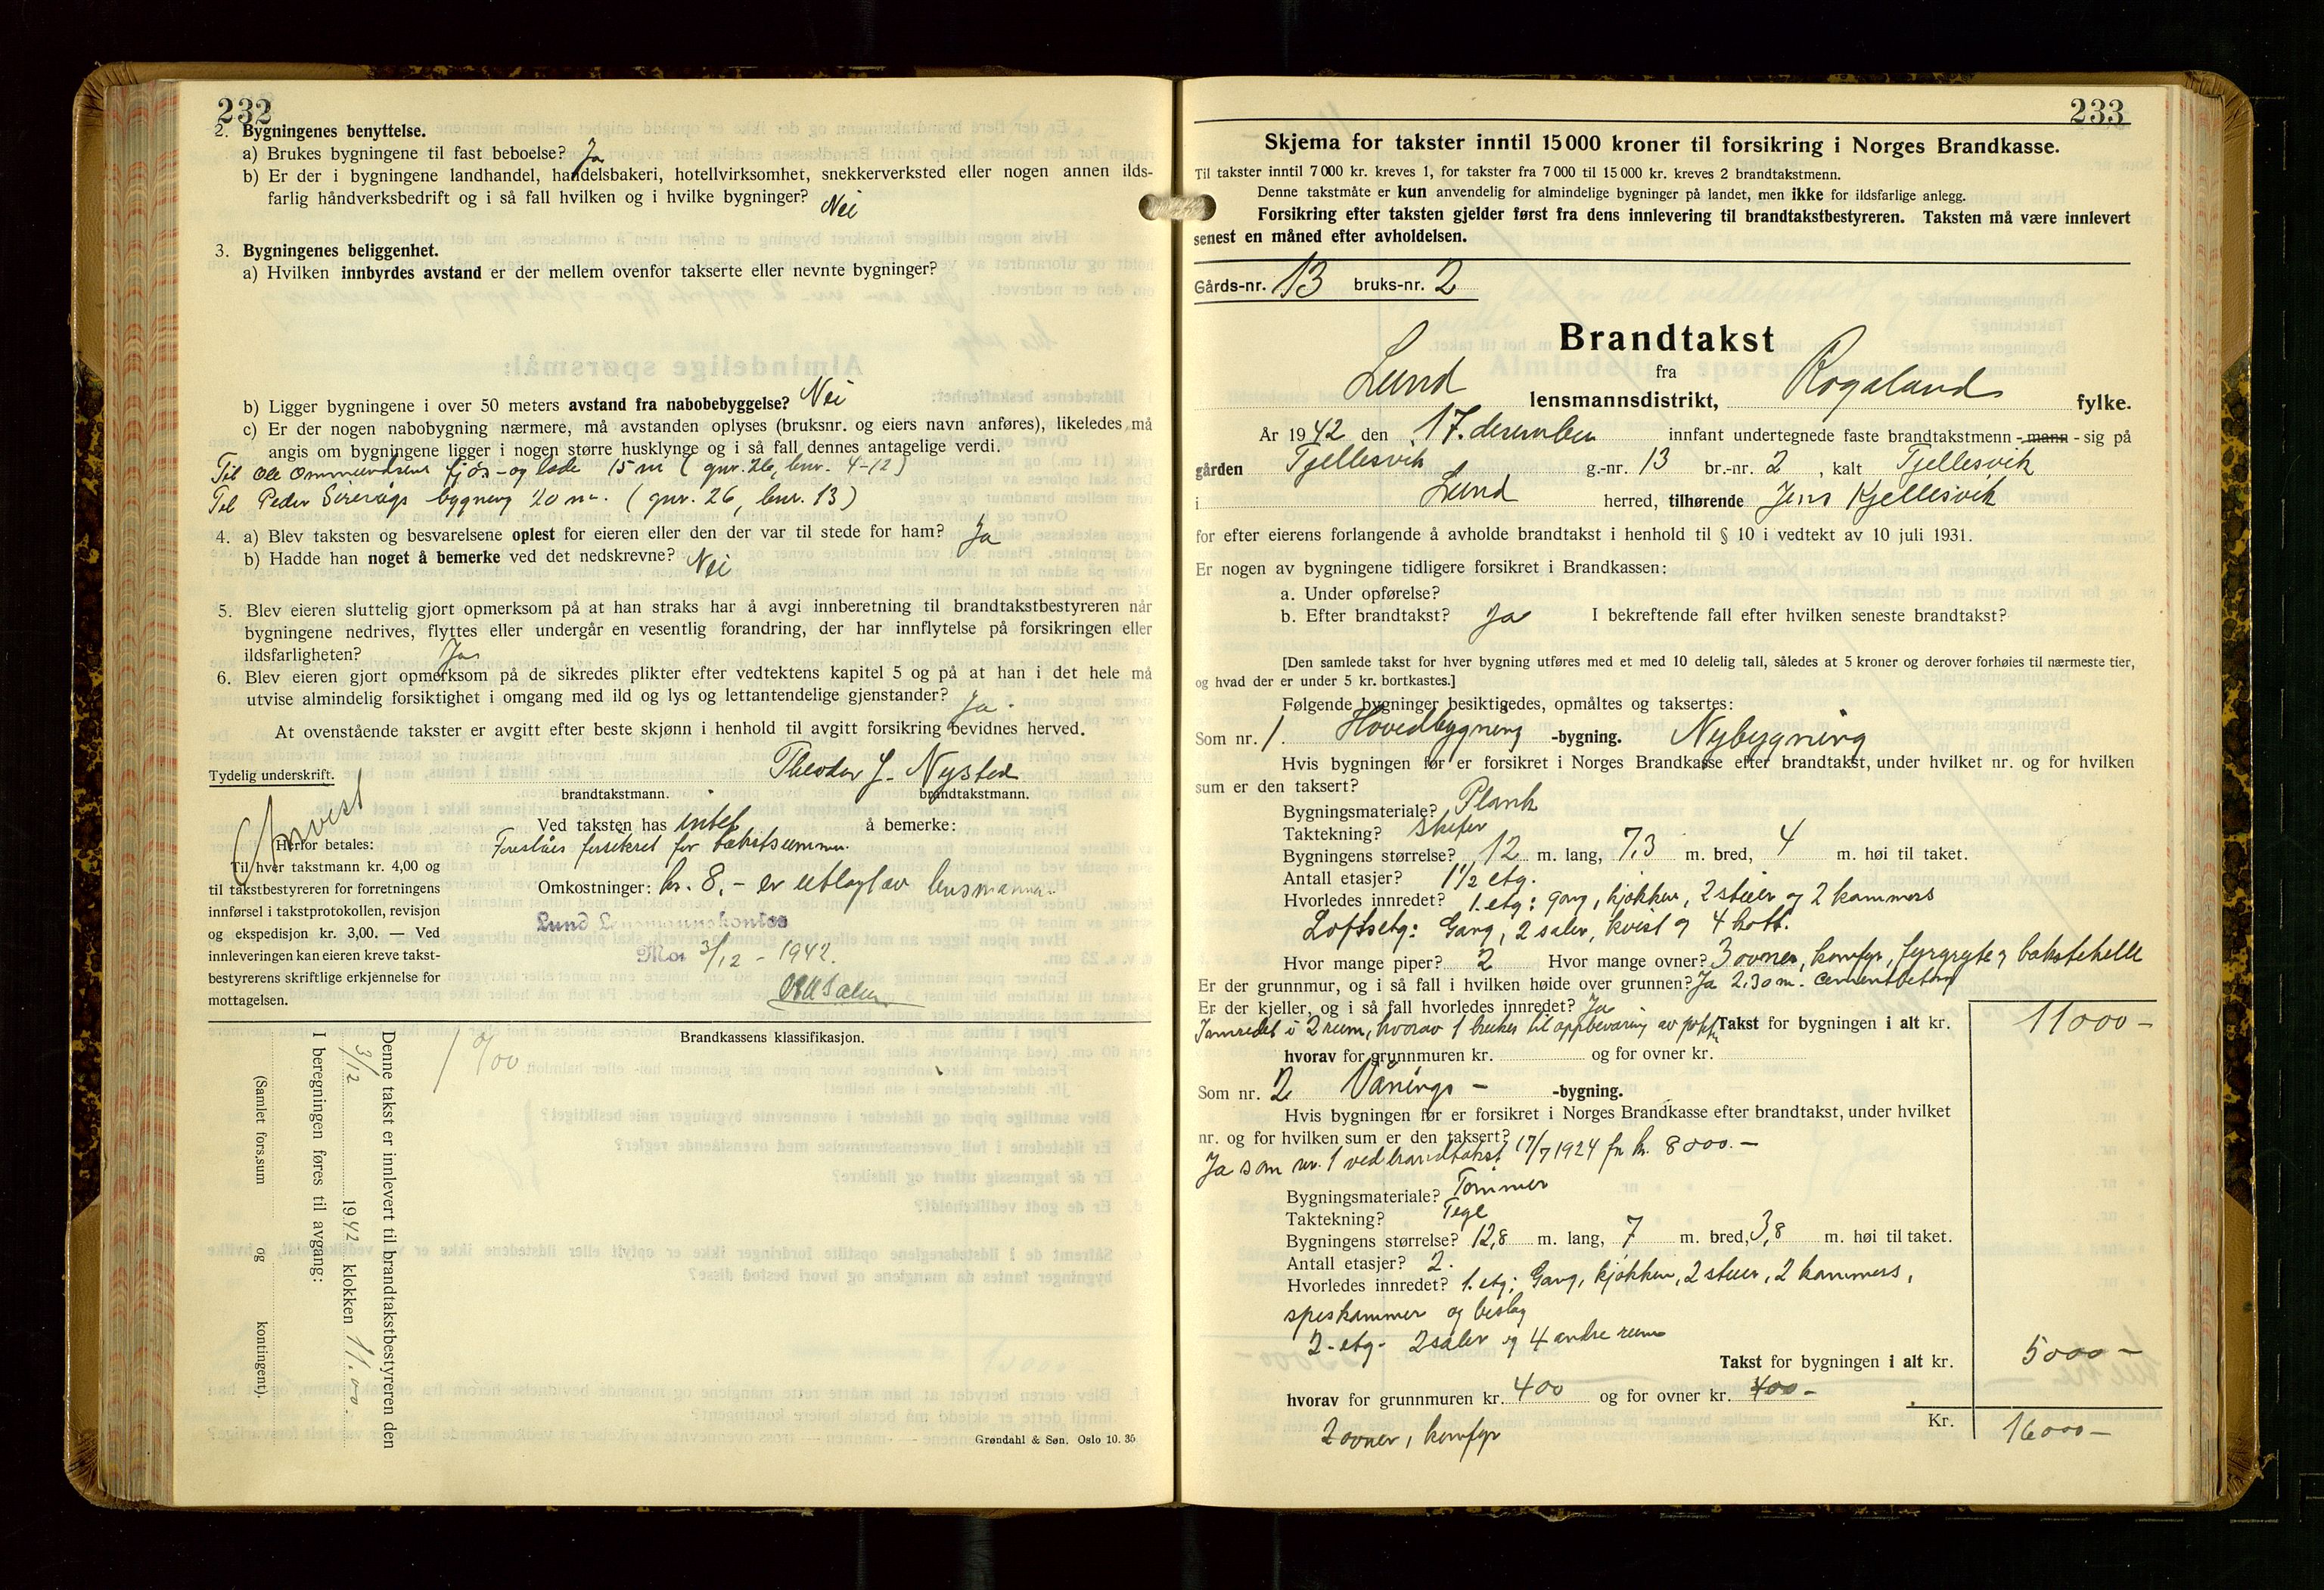 232
2. Bygningenes benyttelse.
a) Brukes bygningene til fast beboelse? Ja
b) Er der i bygningene landhandel, handelsbakeri, hotellvirksomhet, snekkerverksted eller nogen annen ilds-
farlig håndverksbedrift og i så fall hvilken og i hvilke bygninger? Nei
3. Bygningenes beliggenhet.
a) Hvilken innbyrdes avstand er der mellem ovenfor takserte eller nevnte bygninger?
b) Ligger bygningene i over 50 meters avstand fra nabobebyggelse? Nei
c) Er der nogen nabobygning nærmere, må avstanden oplyses (bruksnr. og eiers navn anføres), likeledes må
angis om bygningene ligger i nogen større husklynge og i så fall dennes antagelige verdi.
Til Ole Ommundsens fjøs- og lade 15 m (gnr. 26, bnr. 4-12)
Til Peder Sirevågs bygning 20 m. (gnr. 26, bnr. 13)
4. a) Blev taksten og besvarelsene oplest for eieren eller den der var til stede for ham? Ja
b) Hadde han noget å bemerke ved det nedskrevne? Nei
5. Blev eieren sluttelig gjort opmerksom på at han straks har å avgi innberetning til brandtakstbestyreren når
bygningene nedrives, flyttes eller undergår en vesentlig forandring, der har innflytelse på forsikringen eller
ildsfarligheten? Ja
6. Blev eieren gjort opmerksom på de sikredes plikter efter vedtektens kapitel 5 og på at han i det hele må
utvise almindelig forsiktighet i omgang med ild og lys og lettantendelige gjenstander? Ja.
At ovenstående takster er avgitt efter beste skjønn i henhold til avgitt forsikring bevidnes herved.
Theodor J. Nysted
Tydelig underskrift.
brandtakstmann. brandtakstmann.
Ved taksten has intet å bemerke:
Foreslåes forsikret for takstsummen.
Herfor betales:
Til hver takstmann kr. 4,00 og
til takstbestyreren for forretningens
innførsel i takstprotokollen, revisjon
og ekspedisjon kr. 3,00. — Ved
innleveringen kan eieren kreve takst-
bestyrerens skriftlige erkjennelse for
mottagelsen.
Omkostninger: kr. 8,- er utlagt av lensmannen.
Lund Lensmannskontor
Moi 3/12 - 1942.
Brandkassens klassifikasjon.
1 º/oo
Denne takst er innlevert til brandtakstbestyreren den
3/12 1942 klokken 11.00.
I beregningen føres til avgang:
(Samlet fors.sum og kontingent).
Grøndahl & Søn. Oslo 10. 35
233
Skjema for takster inntil 15000 kroner til forsikring i Norges Brandkasse.
Til takster inntil 7000 kr. kreves 1, for takster fra 7000 til 15000 kr. kreves 2 brandtakstmenn.
Denne takstmåte er kun anvendelig for almindelige bygninger på landet, men ikke for ildsfarlige anlegg.
Forsikring efter taksten gjelder først fra dens innlevering til brandtakstbestyreren. Taksten må være innlevert
senest en måned efter avholdelsen.
Gårds-nr. 13 bruks-nr. 2
Brandtakst
fra
Lund lensmannsdistrikt, Rogaland fylke.
År 1942 den 17. desember innfant undertegnede faste brandtakstmenn - mann - sig på
gården Tjellesvik g.-nr. 13 br.-nr. 2, kalt Tjellesvik
i Lund herred, tilhørende Jens Kjellesvik
for efter eierens forlangende å avholde brandtakst i henhold til § 10 i vedtekt av 10 juli 1931.
Er nogen av bygningene tidligere forsikret i Brandkassen:
a. Under opførelse?
b. Efter brandtakst? Ja I bekreftende fall efter hvilken seneste brandtakst?
[Den samlede takst for hver bygning utføres med et med 10 delelig tall, således at 5 kroner og derover forhøies til nærmeste tier,
og hvad der er under 5 kr. bortkastes.]
Følgende bygninger besiktigedes, opmåltes og taksertes:
Som nr. 1. Hovedbygning -bygning. Nybygning
Hvis bygningen før er forsikret i Norges Brandkasse efter brandtakst, under hvilket nr. og for hvilken
sum er den taksert?
Bygningsmateriale? Plank
Taktekning? Skifer
Bygningens størrelse? 12 m. lang, 7,3 m. bred, 4 m. høi til taket.
Antall etasjer? 1½ etg.
Hvorledes innredet? 1. etg: gang, kjøkken, 2 stuer og 2 kammers
Loftsetg: Gang, 2 saler, kvist og 4 kott.
Hvor mange piper? 2 Hvor mange ovner? 3 ovner, komfyr, fyrgryte og bakstehelle
Er der grunnmur, og i så fall i hvilken høide over grunnen? Ja 2,30 m. cementbetong
Er der kjeller, og i så fall hvorledes innredet? Ja
Innredet i 2 rum, hvorav 1 brukes til oppbevaring av Takst for bygningen i alt kr. 11000-
hvorav for grunnmuren kr. og for ovner kr.
Som nr. 2 Vånings- -bygning.
Hvis bygningen før er forsikret i Norges Brandkasse efter brandtakst, under hvilket
nr. og for hvilken sum er den taksert?
Ja som nr. 1 ved brandtakst 17/7 1924 for kr. 8000.-
Bygningsmateriale? Tømmer
Taktekning? Tegl
Bygningens størrelse? 12,8 m. lang, 7 m. bred, 3,8 m. høi til taket.
Antall etasjer? 2.
Hvorledes innredet? 1. etg: Gang, kjøkken, 2 stuer, 2 kammers,
spiskammer og bislag
2- etg- 2 saler og 4 andre rum
Takst for bygningen i alt kr. 5000-
hvorav for grunnmuren kr. 400 og for ovner kr. 400-
Kr. 16000-
2 ovner, komfyr